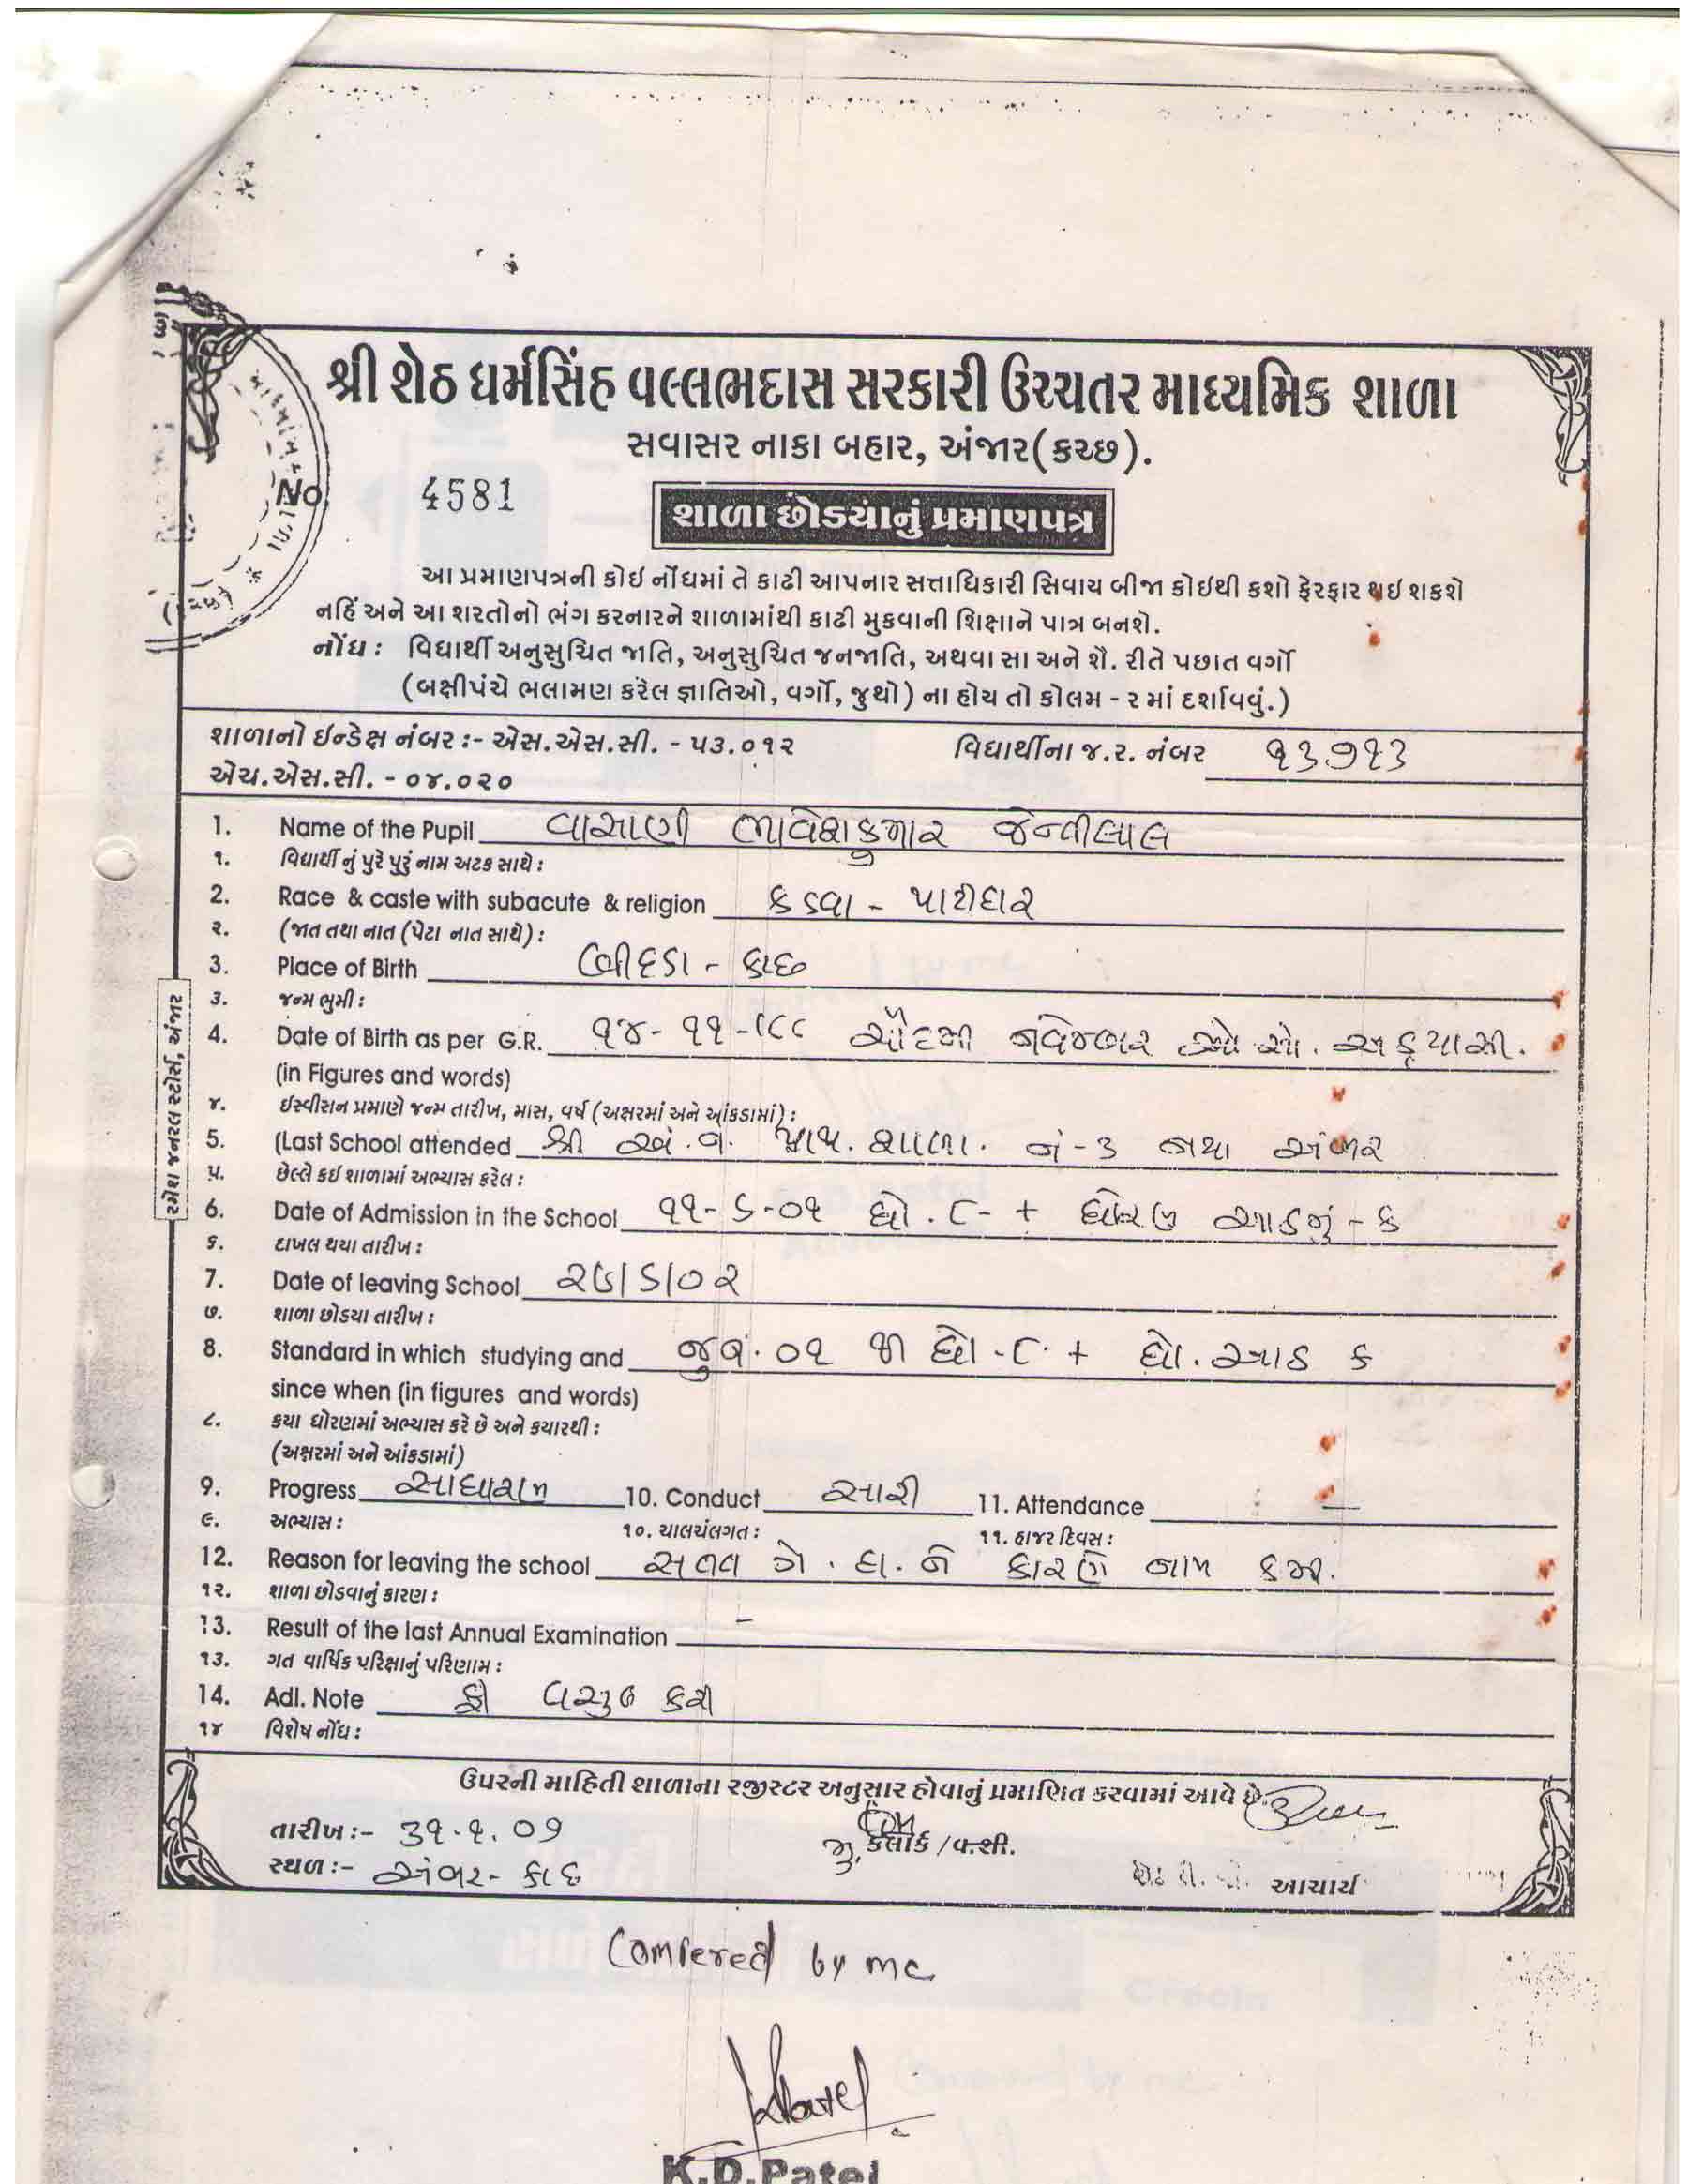 શ્રી શેઠ ધર્મસિંહ વલ્લભદાસ સરકારી ઉચ્ચતર માધ્યમિક શાળા
સવાસર નાકા બહાર, અંજાર(કચ્છ).
No. 4581
શાળા છોડયાનું પ્રમાણપત્ર
આ પ્રમાણપત્રની કોઇ નોંધમાં તે કાઢી આપનાર સત્તાધિકારી સિવાય બીજા કોઇથી કશો ફેરફાર થઇ શકશે
નહિં અને આ શરતોનો ભંગ કરનારને શાળામાંથી કાઢી મુકવાની શિક્ષાને પાત્ર બનશે.
નોંધ : વિદ્યાર્થી અનુસુચિત જાતિ, અનુસુચિત જનજાતિ, અથવા સા અને શૈ. રીતે પછાત વર્ગો
(બક્ષીપંચે ભલામણ કરેલ જ્ઞાતિઓ, વર્ગો, જુથો) ના હોય તો કોલમ - ૨ માં દર્શાવવું.)
શાળાનો ઈન્ડેક્ષ નંબર :- એસ.એસ.સી. - ૫૩.૦૧૨ વિદ્યાર્થીના જ.ર. નંબર ૧૩૭૧૩
એચ.એસ.સી. - ૦૪.૦૨૦
1. Name of the Pupil વાસાણી ભાવેશકુમાર જેન્તીલાલ
૧. વિદ્યાર્થી નું પુરે પુરૂં નામ અટક સાથે :
2. Race & caste with subacute & religion કડવા - પાટીદાર
૨. (જાત તથા નાત (પેટા નાત સાથે) :
3. Place of Birth બીદડા - કચ્છ
૩. જન્મ ભુમી :
4. Date of Birth as per G.R. ૧૪-૧૧-૮૮ ચૌદમી નવેમ્બર ઓ.સો. અઠ્યાસી.
(in Figures and words)
૪. ઈસ્વીસન પ્રમાણે જન્મ તારીખ, માસ, વર્ષ (અક્ષરમાં અને આંકડામાં) :
5. (Last School attended શ્રી શાળા. નં-૩ અંજાર
૫. છેલ્લે કઇ શાળામાં અભ્યાસ કરેલ :
6. Date of Admission in the School ૧૧-૬-૦૧ ધો.૮- + ધોરણ આઠમું - ક
૬. દાખલ થયા તારીખ :
7. Date of leaving School ૨૬/૬/૦૨
૭. શાળા છોડયા તારીખ :
8. Standard in which studying and જુન.૦૧ થી ધો-૮. + ધો.આઠ ક
since when (in figures and words)
૮. કયા ધોરણમાં અભ્યાસ કરે છે અને કયારથી :
(અક્ષરમાં અને આંકડામાં)
9. Progress સાધારણ 10. Conduct સારી 11. Attendance —
૯. અભ્યાસ : ૧૦. ચાલચંલગત : ૧૧. હાજર દિવસ :
12. Reason for leaving the school સતત ગે.હા.ને કારણે નામ કમી.
૧૨. શાળા છોડવાનું કારણ :
13. Result of the last Annual Examination -
૧૩. ગત વાર્ષિક પરિક્ષાનું પરિણામ :
14. Adl. Note ફી વસુલ કરી
૧૪ વિશેષ નોંધ :
ઉપરની માહિતી શાળાના રજીસ્ટર અનુસાર હોવાનું પ્રમાણિત કરવામાં આવે છે.
તારીખ :- ૩૧.૧.૦૭ મુ. કલાર્ક / વ.શી.
સ્થળ :- અંજાર- કચ્છ આચાર્ય
રમેશ જનરલ સ્ટોર્સ, અંજાર
Compered by me
K.D.Patel